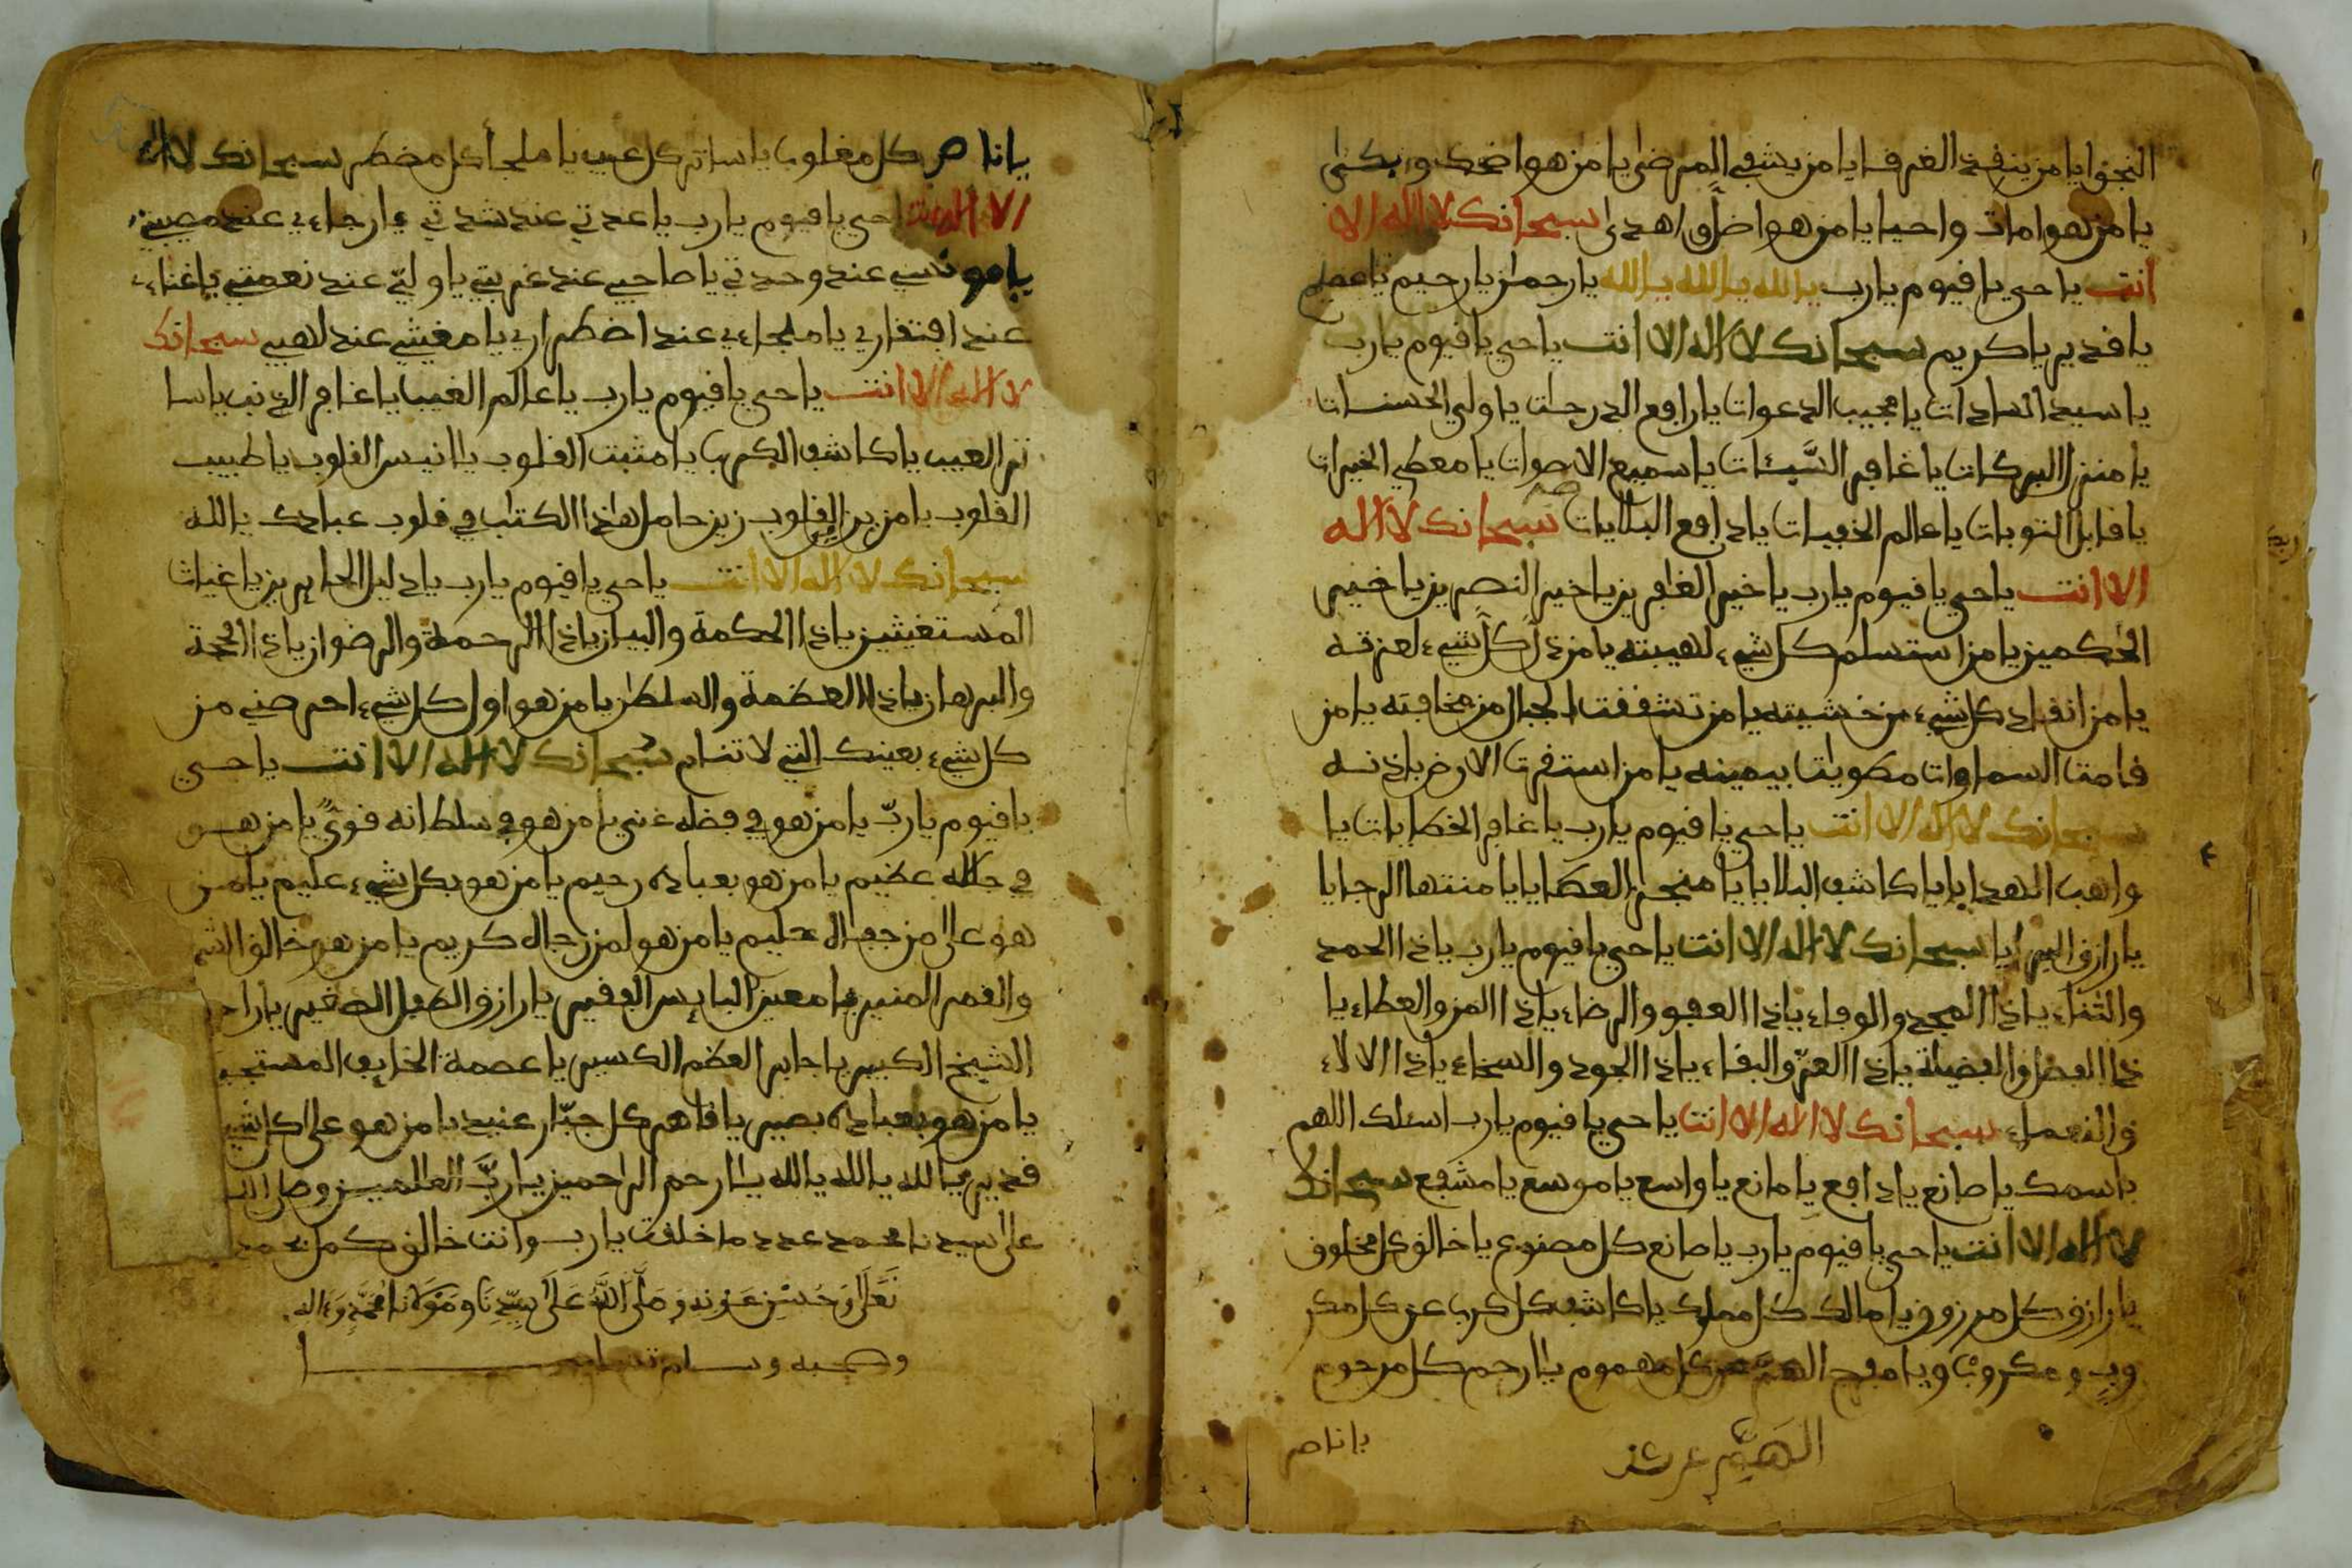 النجوا يا من ينفذ الغرفا يا من يشفي المرضى يا من هو اضحك وابكى
يا من هو امات واحيا يا من هو اضل واهدى سبحانك لا اله الا
انت يا حي يا قيوم يا رب يا الله يا الله يا الله يا رحمان يا رحيم يا عظيم
يا قدير يا كريم سبحانك لا اله الا انت يا حي يا قيوم يا رب
يا سيد السادات يا مجيب الدعوات يا رافع الدرجات يا ولي الحسنات
يا منزل البركات يا غافر السيئات يا سميع الاصوات يا معطي الخيرات
يا قابل التوبات يا عالم الخفيات يا دافع البلايات سبحانك لا اله
الا انت يا حي يا قيوم يا رب يا خير الغافرين يا خير النصرين يا خير
الحكمين يا من استسلم كل شيء لهيبته يا من ذل كل شيء لعزته
يا من انقاد كل شيء من خشيته يا من تشققت الجبال من مخافته يا من
قامت السماوات مطويات بيمينه يا من استقرت الارض باذنه
سبحانك لا اله الا انت يا حي يا قيوم يا رب يا غافر الخطايات يا
واهب الهدايا يا كاشف البلايا يا منجز العطايا يا منتها الرجايا
يا رازق البرايا سبحانك لا اله الا انت يا حي يا قيوم يا رب يا ذا الحمد
والثناء يا ذا المجد والوفاء يا ذا العفو والرضاء يا ذا المن والعطاء يا
ذا الفضل والفضيلة يا ذا العز والبقاء يا ذا الجود والسخاء يا ذا الالاء
والنعماء سبحانك لا اله الا انت يا حي يا قيوم يا رب اسئلك اللهم
باسمك يا صانع يا دافع يا مانع يا واسع يا موسع يا مشفع سبحانك
لا اله الا انت يا حي يا قيوم يا رب يا صانع كل مصنوع يا خالق كل مخلوق
يا رازق كل مرزوق يا مالك كل مملوك يا كاشف كل كرب عن كل مكر
وب و مكروب ويا مفرج الهم عن كل مهموم يا ارحم كل مرحوم
يا ناصر
يا ناصر كل مغلوب يا ساتر كل عيب يا ملجأ كل مضطر سبحانك لا اله
الا انت يا حي يا قيوم يا رب يا عدتي عند شدتي يا رجاءي عند مصيبتي
يا مونسي عند وحدتي يا صاحبي عند غربتي يا وليي عند نعمتي يا غناءي
عند افتقاري يا ملجاءي عند اضطراري يا مغيثي عند لهبي سبحانك
لا اله الا انت يا حي يا قيوم يا رب يا عالم الغيب يا غافر الذنب يا سا
تر العيب يا كاشف الكرب يا مثبت القلوب يا انيس القلوب يا طبيب
القلوب يا مزين القلوب زين حامل هذا الكتاب في قلوب عبادك يا الله
سبحانك لا اله الا انت يا حي يا قيوم يا رب يا دليل الحايرين يا غياث
المستغيثين يا ذا الحكمة والبيان يا ذا الرحمة والرضوان يا ذا الحجة
والبرهان يا ذا العظمة والسلطان يا من هو اول كل شيء احرصني من
كل شيء بعينك التي لا تنام سبحانك لا اله الا انت يا حي
يا قيوم يا رب يا من هو في فضله غني يا من هو في سلطانه قوي يا من هو
في جلاله عظيم يا من هو بعباده رحيم يا من هو بكل شيء عليم يا من
هو على من جفاه حليم يا من هو لمن رجاه كريم يا من هو خالق الشم
والقمر المنير يا معين البايس الفقير يا رازق الطفل الصغير يا راحم
الشيخ الكبير يا جابر العظم الكسير يا عصمة الخايف المستجير
يا من هو بعباده بصير يا قاهر كل جبار عنيد يا من هو على كل شيء
قدير يا الله يا الله يا الله يا ارحم الراحمين يا رب العلمين وصلى الله
على سيدنا محمد عدد ما خلقت يا رب وانت خالق كمل بحمد
تعلى وحسن عونه وصلى الله على سيدنا ومولانا محمد وءاله
وصحبه وسلم تسليما